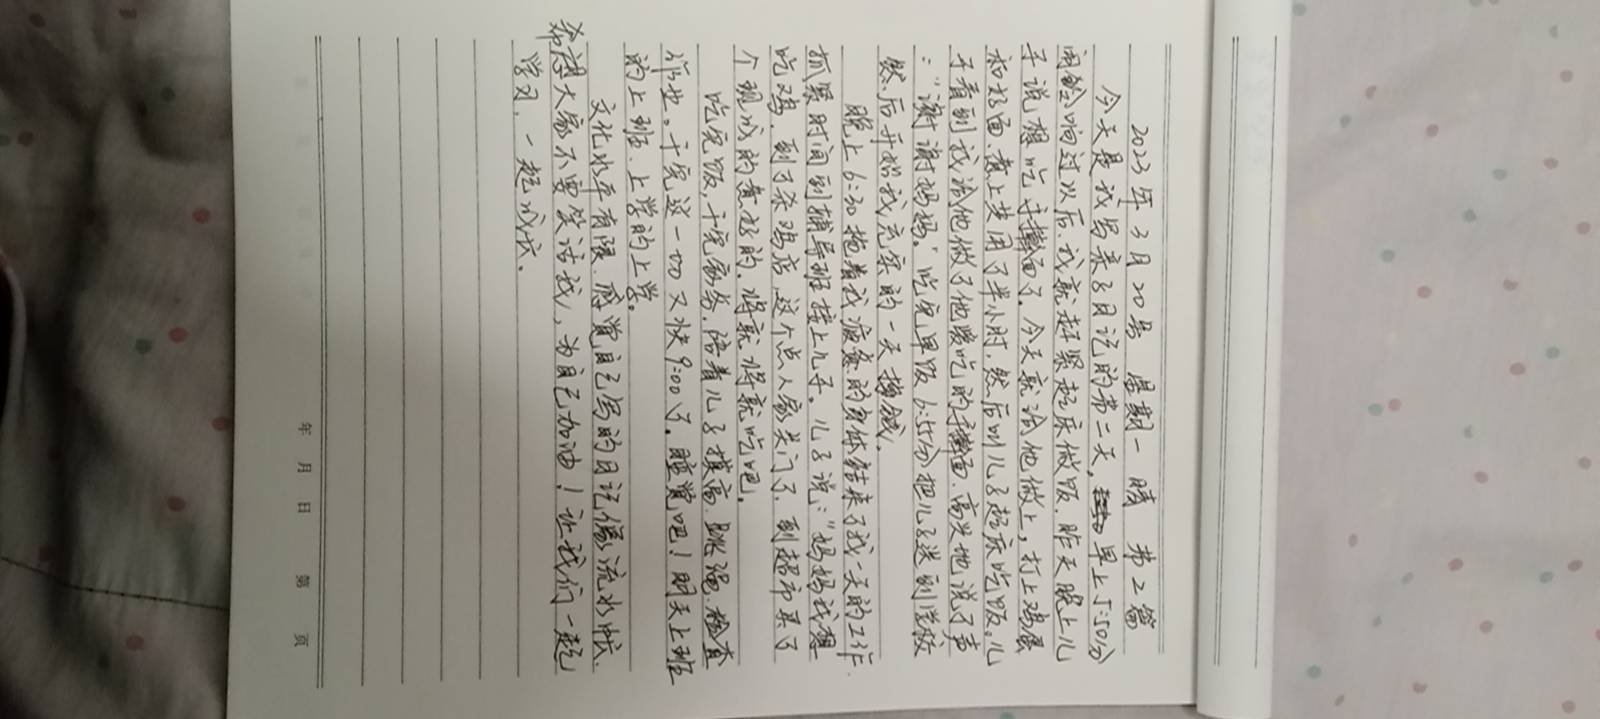 2023年3月20号 星期一 晴 第2篇
今天是我写亲子日记的第二天,早上5:50分
闹铃响过以后,我就赶紧起床做饭.昨天晚上儿
子说想吃手擀面了.今天就给他做上,打上鸡蛋
和好面.煮上共用了半小时,然后叫儿子起床吃饭。儿
子看到我给他做了他爱吃的手擀面.高兴地说了声
:“谢谢妈妈.”吃完早饭6:55分把儿子送到学校
然后开始我充实的一天.
晚上6:30拖着我疲惫的身体结束了我一天的工作.
抓紧时间到辅导班接上儿子。儿子说:“妈妈我想
吃鸡.到了杀鸡店,这个点人家关门了.到超市买了
个现成的煮好的.将就将就吃吧.
吃完饭,干完家务.陪着儿子摸高.跳绳.检查
作业。干完这一切又快9:00了.睡觉吧!明天上班
的上班.上学的上学。
文化水平有限.感觉自己写的日记像流水帐.
希望大家不要笑话我,为自己加油!让我们一起
学习.一起成长.
年 月 日 第 页